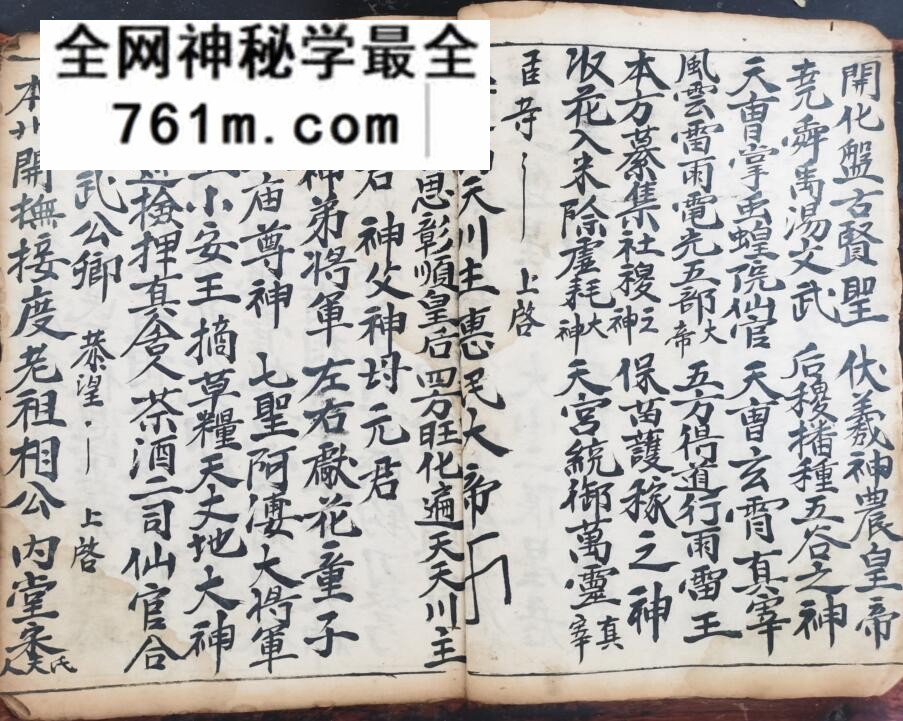 全网神秘学最全
761m.com
開化盤古賢聖 伏羲神農皇帝
尭舜禹湯文武 后稷播種五谷之神
天曹掌禹蝗院仙官 天曹玄霄真宰
風雲雷雨電光五部大帝 五方得道行雨雷王
本方纂集社稷之神 保苗護稼之神
收花入米除虛耗大神 天宮統御萬靈真宰
臣等 上啓
天川主惠民大帝
恩彰順皇后 四方旺化遍天天川主
神父神母元君
神弟將軍 左右獻花童子
庙尊神 七聖阿凄大將軍
小安王 摘草糧天丈地大神
檢押真舍人 茶酒二司仙官合
武公卿 恭望 上啓
開撫接度老祖相公 内堂